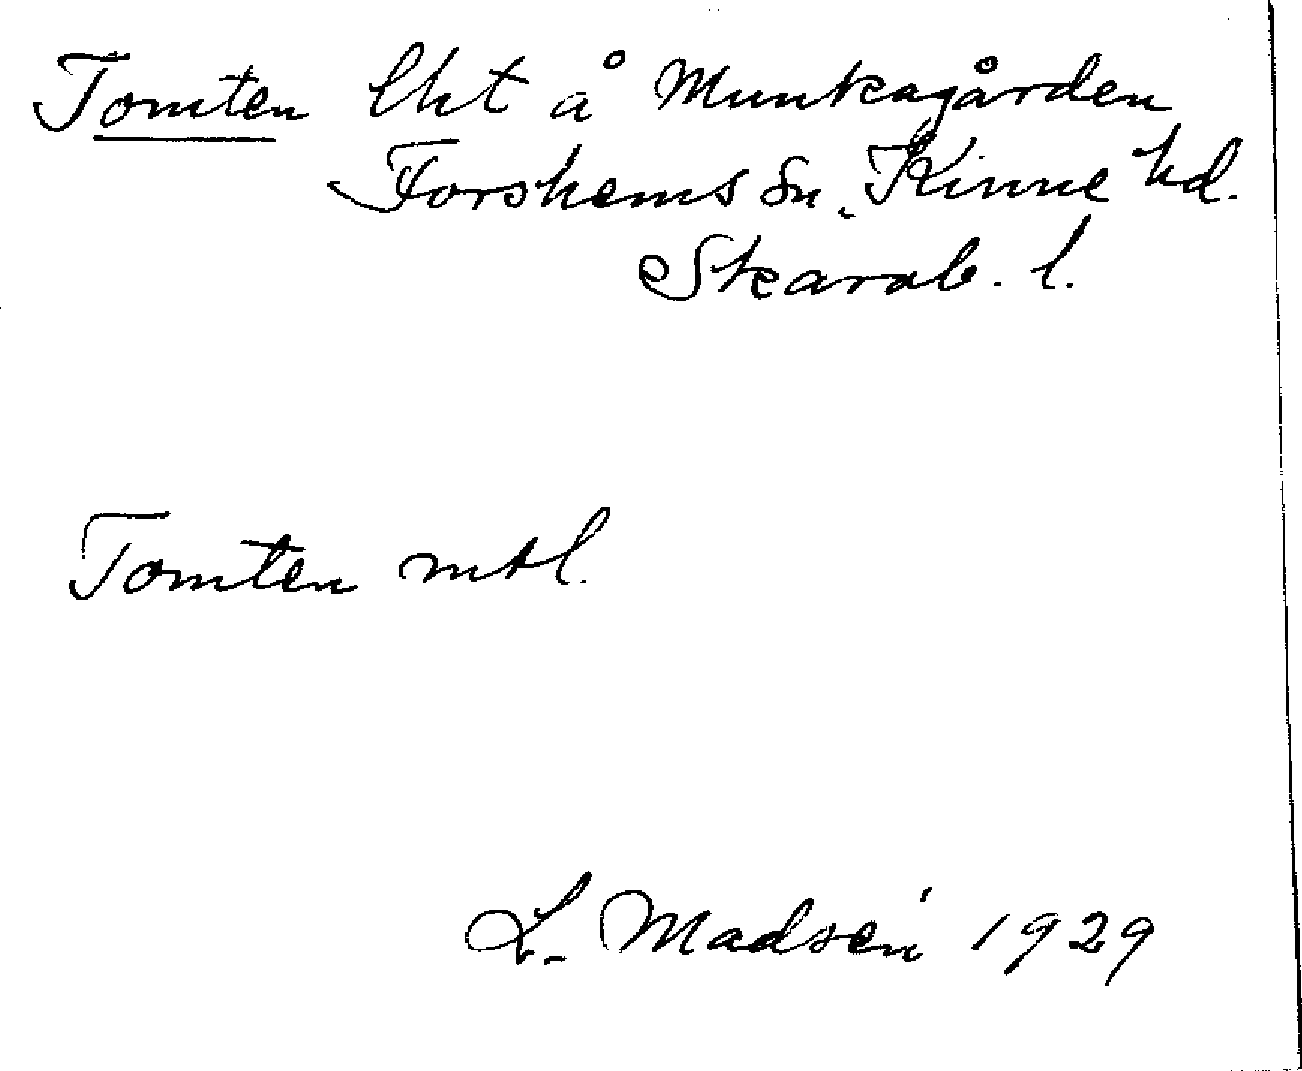 Tomten lht å Munkagården
Forshems sn. Kinne hd.
Skarab. l.
Tomten mtl.
L. Madsén 1929